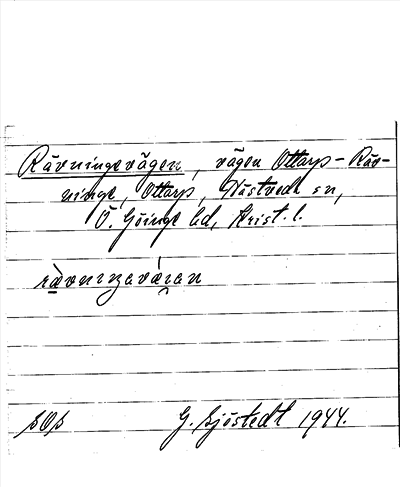 Rävningevägen, vägen Ottarp - Räv-
ninge, Ottarp, Nästveds sn,
Ö. Göinge hd, Krist. l.
G. Sjöstedt 1944.